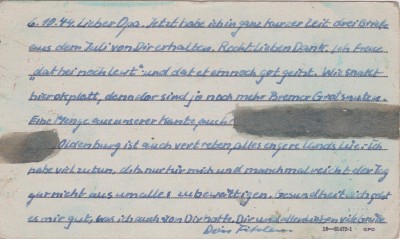 6.10.44. Lieber Opa. Jetzt habe ich in ganz kurzer Zeit drei Briefe
aus dem Juli von Dir erhalten. Recht lieben Dank. Ich freue
„dat hei noch lewt" und dat et em noch got geiht. Wi snaket
hier ok platt, denn dor sind jo noch mehr Bremer
Eine Menge aus unserer Kante, auch
Oldenburg ist auch vertreten, alles engere Landsleute. Ich
habe viel zu tun, dih nur für mich und manchmal reicht der Tag
gar nicht aus um alles zu bewältigen. Gesundheitlich geht
es mir gut, was ich auch von Dir hoffe. Dir und allen andern viele Grüße
Dein
16—51472-1 GPO